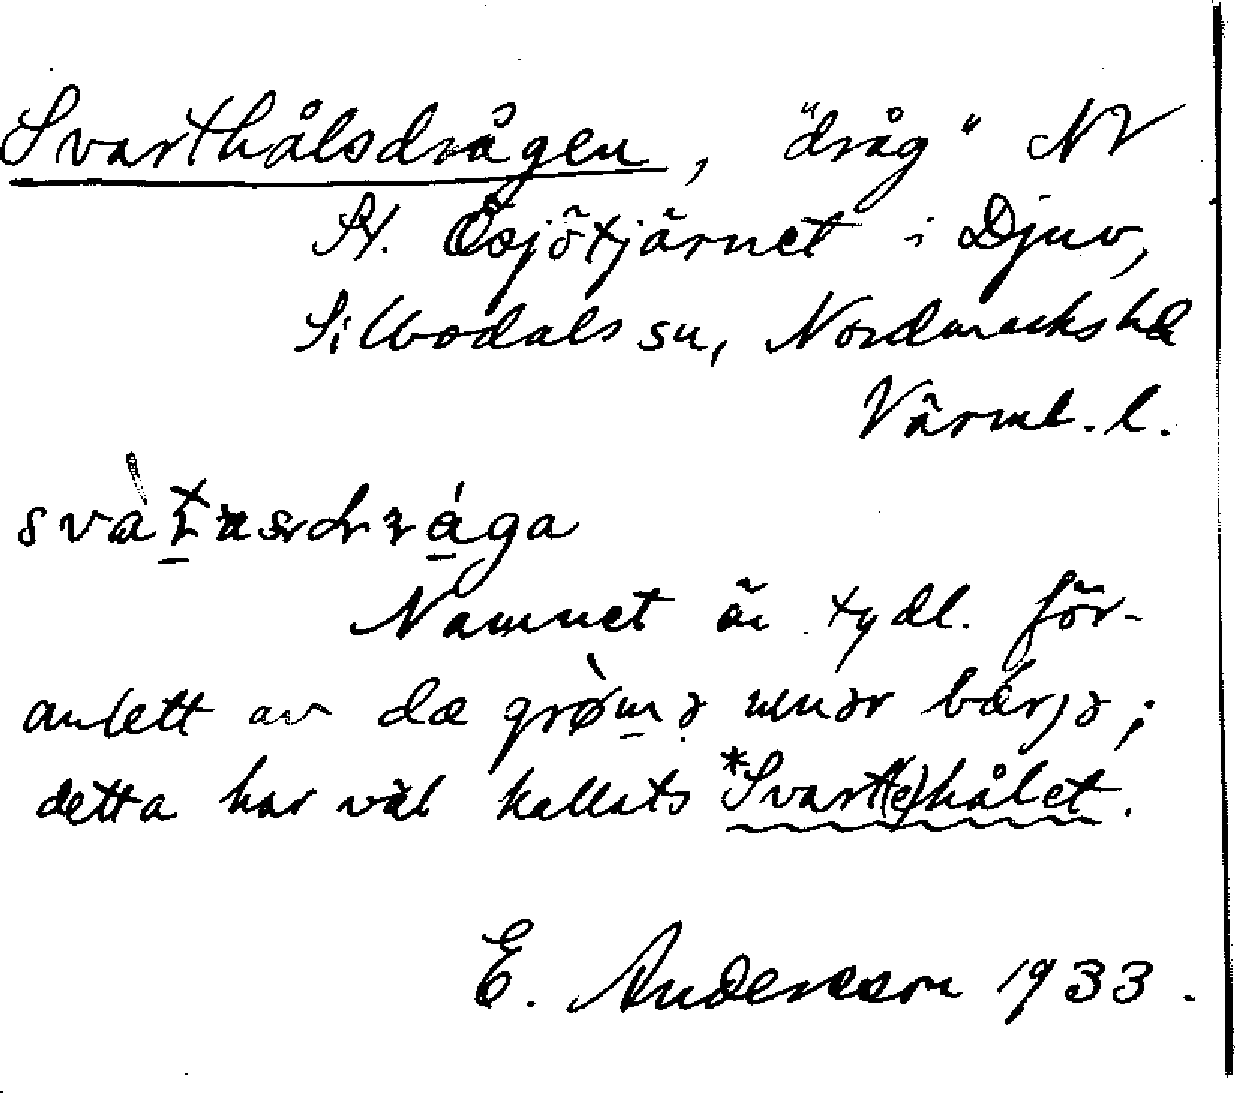 Svarthålsdrågen, "dråg" NV
St. Ösjötjärnet i Djuv,
Silbodals sn, Nordmarks hd
Värml. l.
Namnet är tydl. för-
anlett av dæ grø̀mə unər bærjə;
detta har väl kallats *Svart(e)hålet.
E. Andersson 1933.